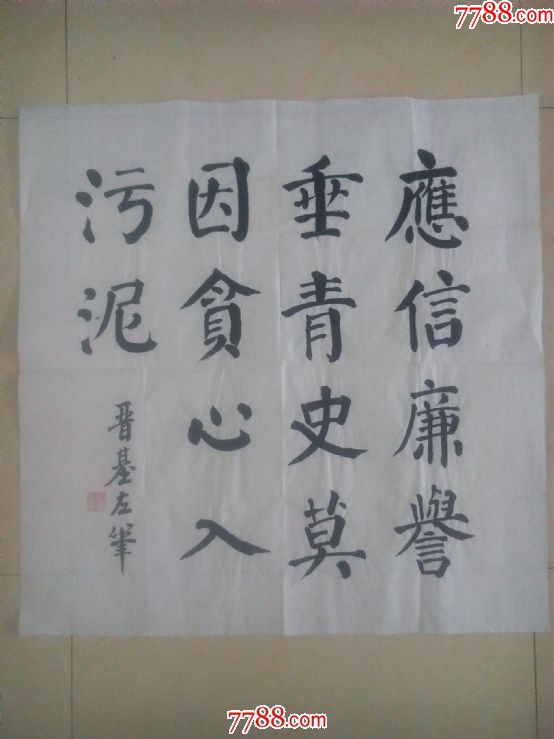 7788.com
應信廉譽
垂青史莫
因貪心入
污泥
晋基左筆
7788.com